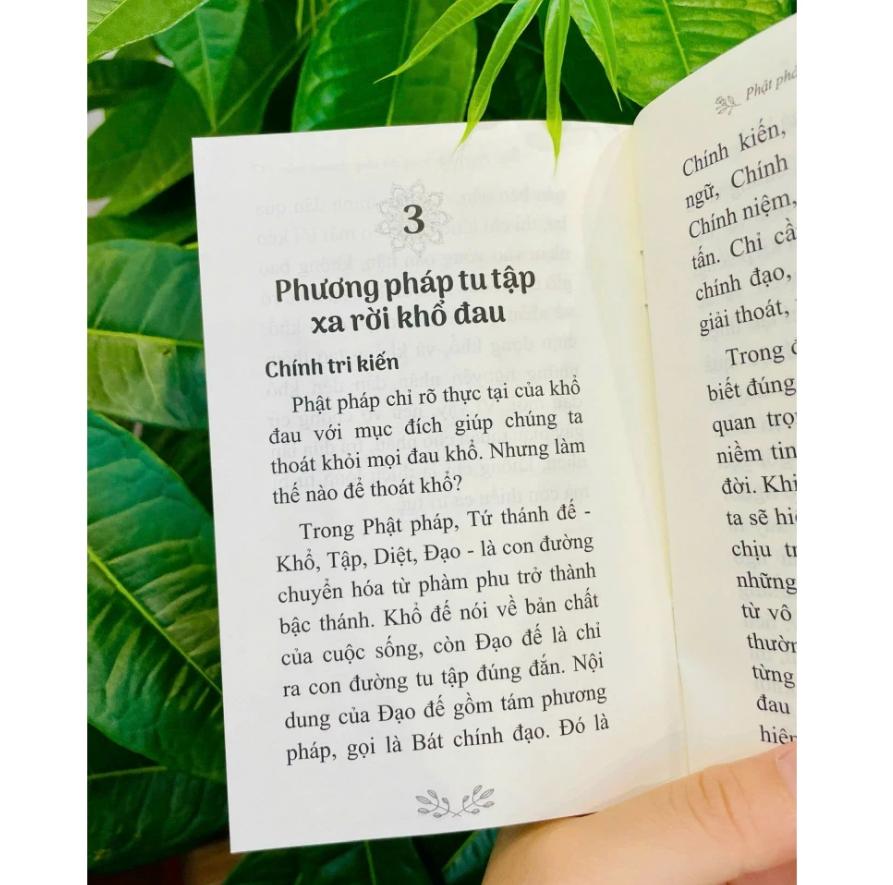 3
Phương pháp tu tập
xa rời khổ đau
Chính tri kiến
Phật pháp chỉ rõ thực tại của khổ
đau với mục đích giúp chúng ta
thoát khỏi mọi đau khổ. Nhưng làm
thế nào để thoát khổ?
Trong Phật pháp, Tứ thánh đế -
Khổ, Tập, Diệt, Đạo - là con đường
chuyển hóa từ phàm phu trở thành
bậc thánh. Khổ đế nói về bản chất
của cuộc sống, còn Đạo đế là chỉ
ra con đường tu tập đúng đắn. Nội
dung của Đạo đế gồm tám phương
pháp, gọi là Bát chính đạo. Đó là
Phật
Chính kiến,
ngữ, Chính
Chính niệm,
tấn. Chỉ
chính đạo,
giải thoát,
Trong
biết đúng
quan
niềm tin
đời. Khi
ta sẽ
chịu
những
từ vô
từng
đau